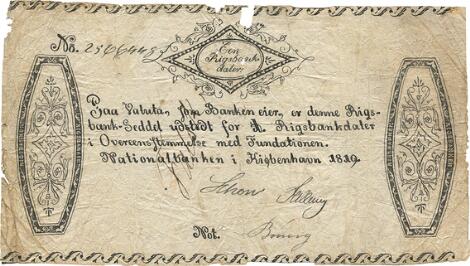 No. 2566445
Een
Rigsbank
daler
Paa Valuta, som Banken eier, er denne Rigs-
bank-Seddel udstedt for 1. Rigsbankdaler
i Overeensstemmelse med Fundationen.
Nationalbanken i Kiøbenhavn 1819.
Not.